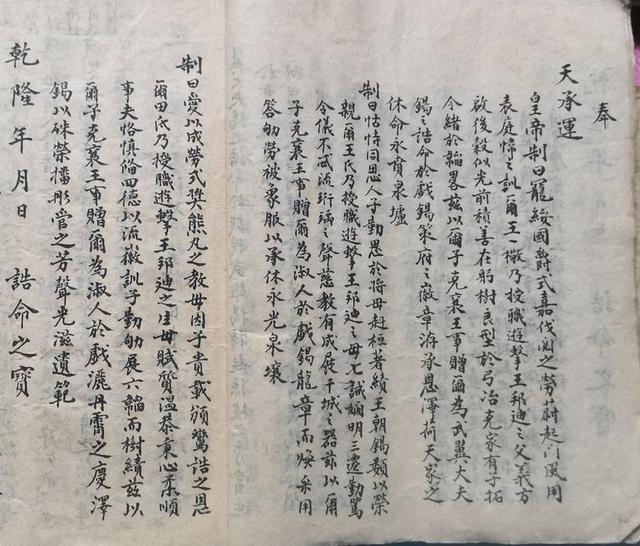 奉
天承運
皇帝制曰寵綏國爵式嘉伐閱之勞蔚起門風用
表庭幃之訓爾王一敬乃授職遊擊王邦迪之父義方
啟後穀似光前積善在躬樹良型於弓冶克家有子拓
令緒於韜畧茲以爾子克襄王事贈爾為武翼大夫
錫之誥命於戲錫策府之徽章洊承恩澤荷天家之
休命永賁泉壚
制曰怙恃同恩人子勤思於將母赳桓著績王朝錫類以榮
親爾王氏乃授職遊擊王邦迪之母七誡嫻明三遷勤篤
令儀不忒流珩瑀之聲慈教有成展干城之器茲以爾
子克襄王事贈爾為淑人於戲錫龍章而煥采用
答劬勞被象服以承休永光泉壤
制曰爰以成勞式獎熊丸之教母因子貴載頒鸞誥之恩
爾田氏乃授職遊擊王邦迪之生母賦質溫恭秉心柔順
事夫恪慎脩四德以流徽訓子勤劬展六韜而樹績茲以
爾子克襄王事贈爾為淑人於戲灑丹霄之慶澤
錫以殊榮播彤管之芳聲光滋遺範
乾隆年月日 誥命之寶